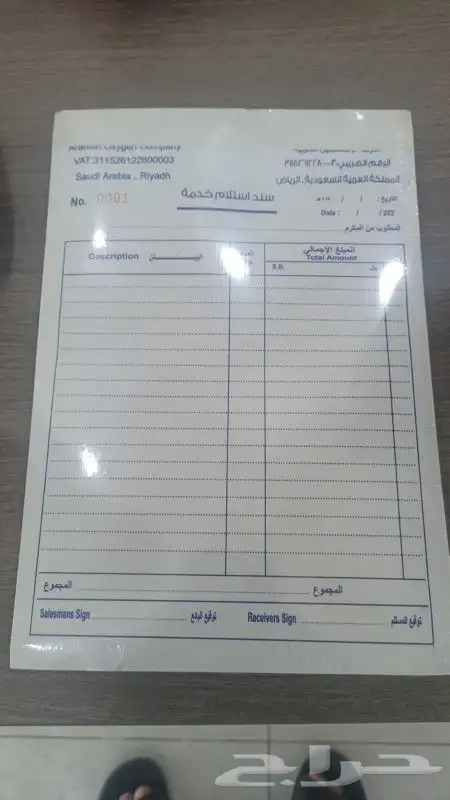 Arabian Oxygen Company
VAT:311526122800003
Saudi Arabia .. Riyadh
المملكة العربية السعودية ـ الرياض
No. 0001
سند استلام خدمة
التاريخ : / /
Date : / / 202
المطلوب من المكرم
Description البيــــــــان
المبلغ الإجمالي
Total Amount
S.R.
المجموع المجموع
Salesmans Sign توقيع البائع
Receivers Sign توقيع المستلم
حراج